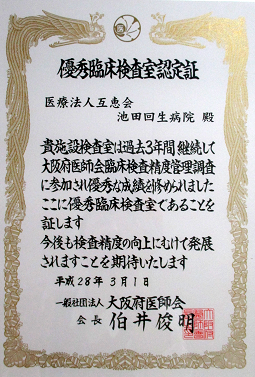 優秀臨床検査室認定証
医療法人互恵会
池田回生病院 殿
貴施設検査室は過去3年間継続して
大阪府医師会臨床検査精度管理調査
に参加され優秀な成績を修められました
ここに優秀臨床検査室であることを
証します
今後も検査精度の向上にむけて発展
されますことを期待いたします
平成28年3月1日
一般社団法人 大阪府医師会
会長 伯井俊明